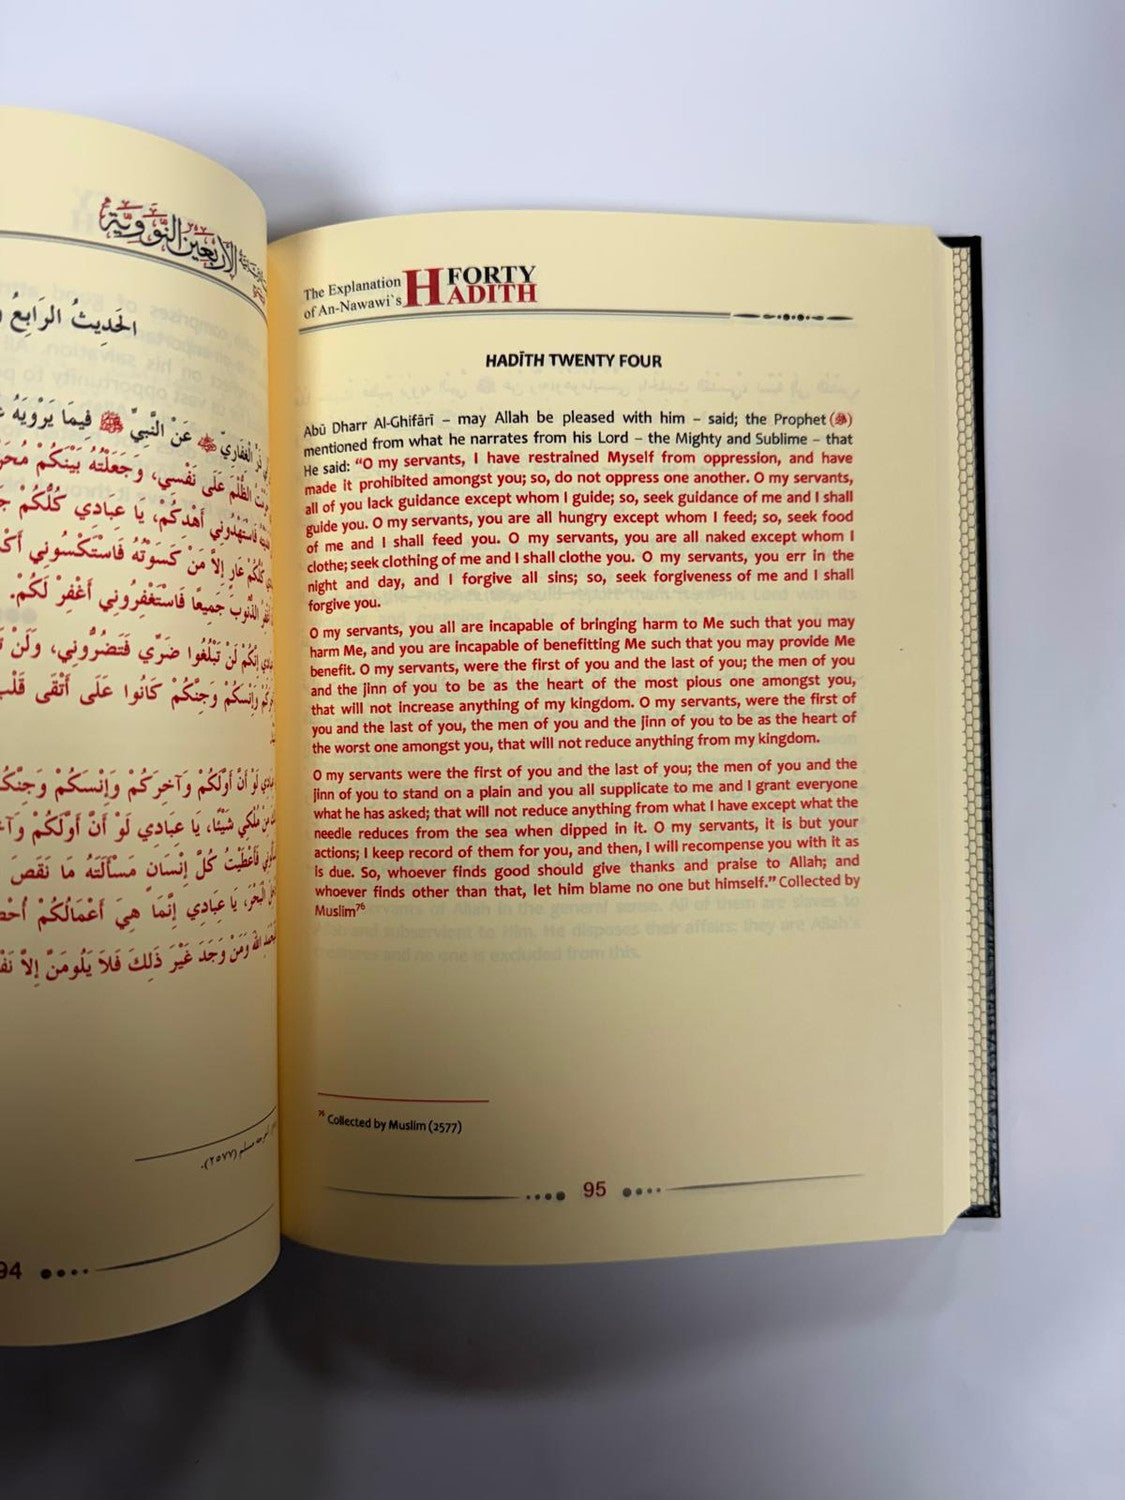 الأربعين النووية
الحَدِيثُ الرَابِعُ
عَنْ النَّبِيِّ ﷺ فِيمَا يَرْوِيَهُ
الظُّلْمَ عَلَى نَفْسِي، وَجَعَلْتُهُ بَيْنَكُمْ
فَاسْتَهْدُونِي أَهْدِكُمْ، يَا عِبَادِي كُلُّكُمْ
كُلُّكُمْ عَارٍ إِلاَّ مَنْ كَسَوْتُهُ فَاسْتَكْسُونِي
الذُّنُوبَ جَمِيعًا فَاسْتَغْفِرُونِي أَغْفِرْ لَكُمْ.
إِنَّكُمْ لَنْ تَبْلُغُوا ضَرِّي فَتَضُرُّونِي، وَلَنْ
وَإِنْسَكُمْ وَجِنَّكُمْ كَانُوا عَلَى أَتْقَى
لَوْ أَنَّ أَوَّلَكُمْ وَآخِرَكُمْ وَإِنْسَكُمْ
مِنْ مُلْكِي شَيْئًا، يَا عِبَادِي لَوْ أَنَّ أَوَّلَكُمْ
فَأَعْطَيْتُ كُلَّ إِنْسَانٍ مَسْأَلَتَهُ مَا نَقَصَ
الْبَحْرَ، يَا عِبَادِي إِنَّمَا هِيَ أَعْمَالُكُمْ
اللهَ وَمَنْ وَجَدَ غَيْرَ ذَلِكَ فَلَا يَلُومَنَّ إِلاَّ
مسلم (٢٥٧٧).
94
The Explanation
of An-Nawawi`s
FORTY
HADITH
HADĪTH TWENTY FOUR
Abū Dharr Al-Ghifārī – may Allah be pleased with him – said; the Prophet (ﷺ)
mentioned from what he narrates from his Lord – the Mighty and Sublime – that
He said: “O my servants, I have restrained Myself from oppression, and have
made it prohibited amongst you; so, do not oppress one another. O my servants,
all of you lack guidance except whom I guide; so, seek guidance of me and I shall
guide you. O my servants, you are all hungry except whom I feed; so, seek food
of me and I shall feed you. O my servants, you are all naked except whom I
clothe; seek clothing of me and I shall clothe you. O my servants, you err in the
night and day, and I forgive all sins; so, seek forgiveness of me and I shall
forgive you.
O my servants, you all are incapable of bringing harm to Me such that you may
harm Me, and you are incapable of benefitting Me such that you may provide Me
benefit. O my servants, were the first of you and the last of you; the men of you
and the jinn of you to be as the heart of the most pious one amongst you,
that will not increase anything of my kingdom. O my servants, were the first of
you and the last of you, the men of you and the jinn of you to be as the heart of
the worst one amongst you, that will not reduce anything from my kingdom.
O my servants were the first of you and the last of you; the men of you and the
jinn of you to stand on a plain and you all supplicate to me and I grant everyone
what he has asked; that will not reduce anything from what I have except what the
needle reduces from the sea when dipped in it. O my servants, it is but your
actions; I keep record of them for you, and then, I will recompense you with it as
is due. So, whoever finds good should give thanks and praise to Allah; and
whoever finds other than that, let him blame no one but himself.” Collected by
Muslim⁷⁶
⁷⁶ Collected by Muslim (2577)
95